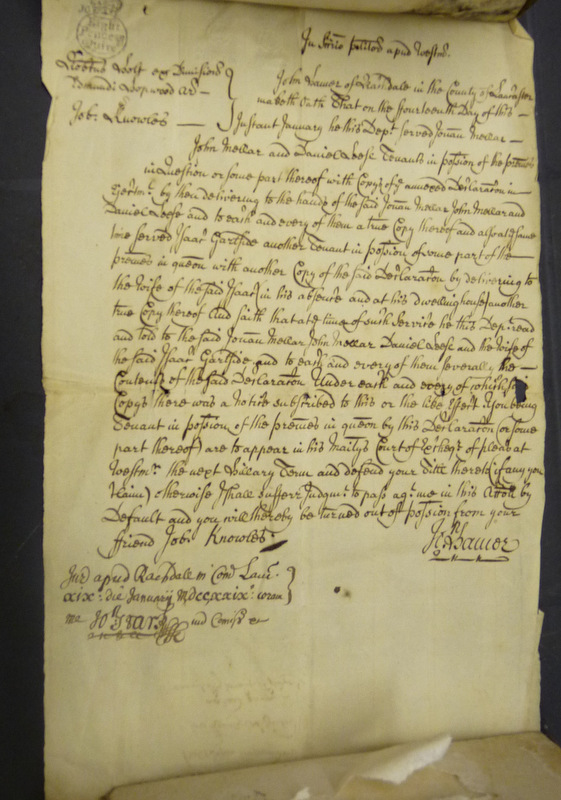 In Sccio Placitor apud Westmr
Holt ex Dimission
Edmundi Hopwood Ar
Job: Knowles
John Hamer of Rachdale in the County of Lancaster
maketh Oath That on the ffourteenth Day of this
Instant January he this Dept served Jonan Mellar
John Mellar and Daniel Leese Tenants in possion of the premes
in Question or some part thereof with Copys of ye annexed Declaraton in
Ejectmt by then delivering to the hands of the said Jonan Mellar John Mellar and
Daniel Leese and to each and every of them a true Copy thereof and also at ye same
time served Isaac Gartside another Tenant in possion of some part of the
premes in queon with another Copy of the said Declaraton by delivering to
the Wife of the said Isaac (in his absence and at his dwellinghouse) another
true Copy thereof And saith that att time of such Service he this Dept read
and told to the said Jonan Mellar John Mellar Daniel Leese and the Wife of
the said Isaac Gartside and to each and every of them severally the
Contents of the said Declaraton Under each and every of which sd
Copys there was a notice subscribed to this or the like Effect You being
Tenant in possion of the premes in queon by this Declaraton (or some
part thereof) are to appear in his Matys Court of Excheqr of pleas at
Westmr the next Hillary Term and defend your title thereto (if any you
Claim) otherwise I shall sufferr Judgmt to pass agt me in this Accon by
Default and you will thereby be turned out of Possion from your
ffriend Job: Knowles
Jn Hamer
Jur apud Rachdale in Com Lanc
xix die January MDCCxxix coram
me